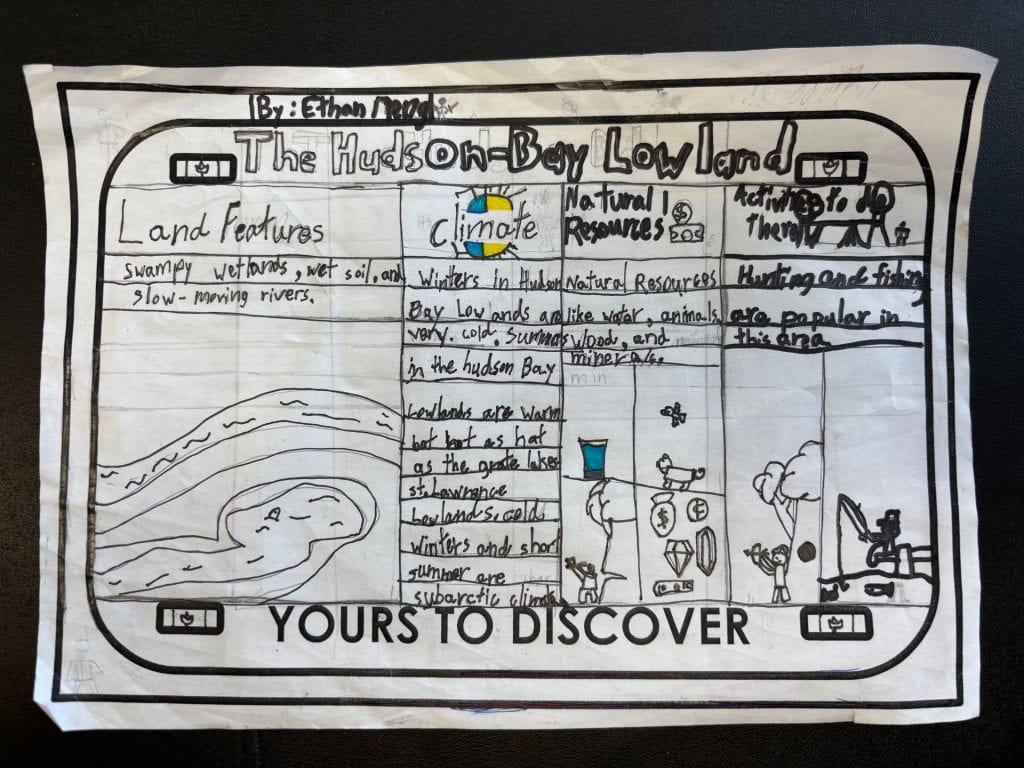 By: Ethan Meng
The Hudson-Bay Lowland
Land Features
swampy wetlands, wet soil, and
slow-moving rivers.
Climate
Winters in Hudson
Bay Lowlands are
very. cold. Summers
in the hudson Bay
Lowlands are warm
bot not as hat
as the grate lakes
st. Lawrance
Lowlands. cold
winters and short
summer are
subarctic climate
Natural
Resources
$
Natural Resources
like water, animals,
wood, and
minerals.
min
$
¢
Activities to do
There
Hunting and fishing
are popular in
this area
YOURS TO DISCOVER